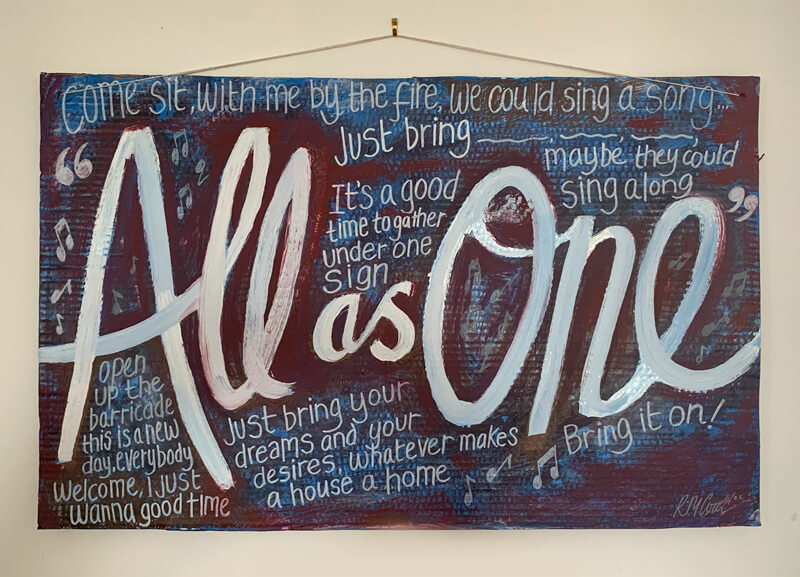 Come sit, with me by the fire, we could sing a song...
Just bring ___, ___, ___,
maybe they could
sing along
“All as One”
It's a good
time to gather
under one
sign
open
up the
barricade
this is a new
day, everybody
Welcome, I just
wanna good time
Just bring your
dreams and your
desires, whatever makes
a house a home
Bring it on!